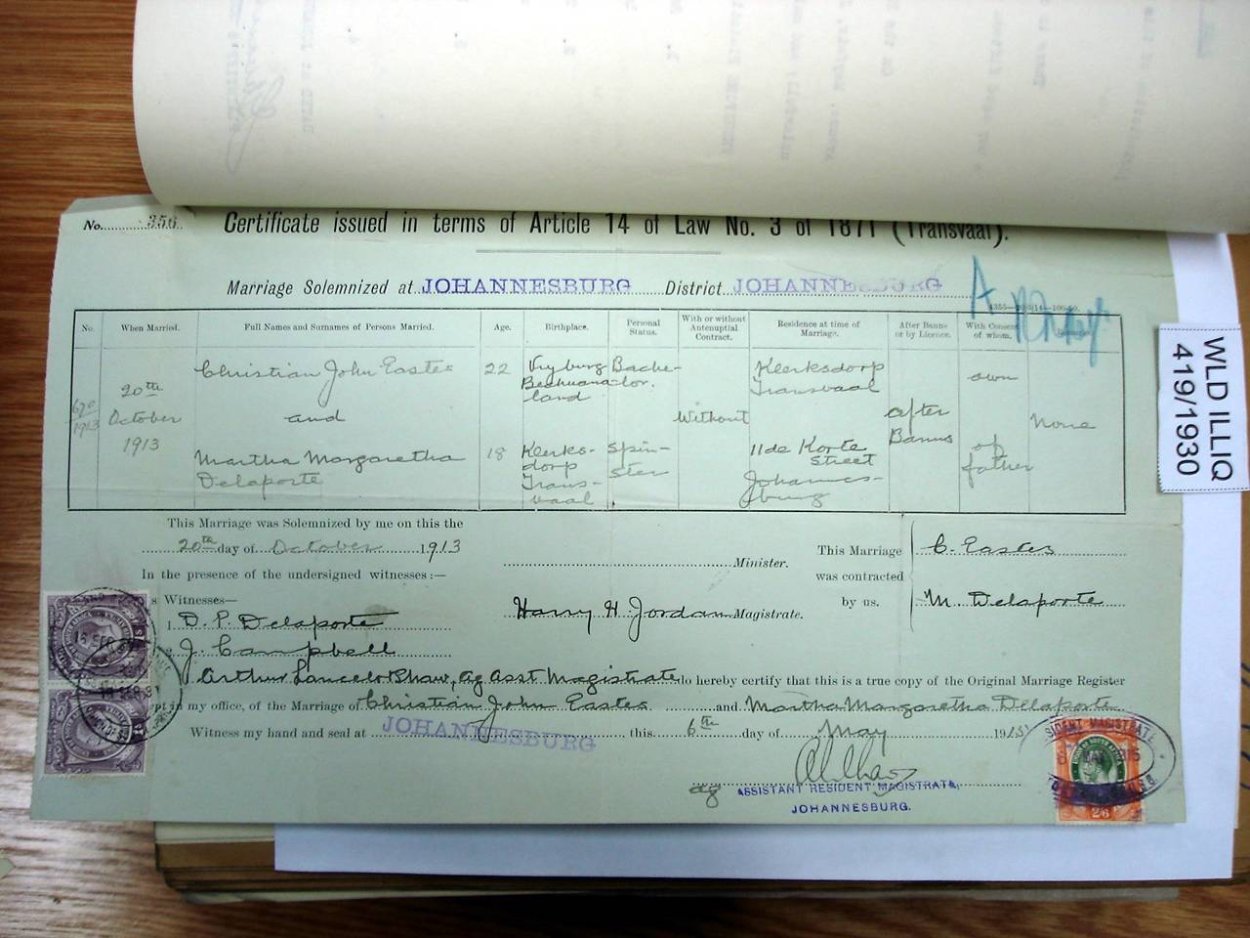 No. 356
Certificate issued in terms of Article 14 of Law No. 3 of 1871 (Transvaal).
Marriage Solemnized at JOHANNESBURG District JOHANNESBURG
A
No. When Married. Full Names and Surnames of Persons Married. Age. Birthplace. Personal Status. With or without Antenuptial Contract. Residence at time of Marriage. After Banns or by Licence. With Consent of whom.
670/1913
20th October 1913
Christian John Eastes
and
Martha Margaretha
Delaporte
22
18
Vryburg
Bechuana-
land
Klerks-
dorp
Trans-
vaal
Bache-
lor.
Spin-
ster
Without
Klerksdorp
Transvaal
11 de Korte
Street
Johannes-
burg
after
Banns
own
of
father
None
WLD ILLIQ
419/1930
This Marriage was Solemnized by me on this the
20th day of October 1913
Minister.
This Marriage
was contracted
by us.
C. Eastes
M. Delaporte
In the presence of the undersigned witnesses:—
Witnesses—
1. D. P. Delaporte
2. J. Campbell
Harry H. Jordan Magistrate.
I Arthur Lancelot Shaw, Ag Asst Magistrate do hereby certify that this is a true copy of the Original Marriage Register
kept in my office, of the Marriage of Christian John Eastes and Martha Margaretha Delaporte
Witness my hand and seal at JOHANNESBURG this 6th day of May 1915
ag ASSISTANT RESIDENT MAGISTRATE,
JOHANNESBURG.
2/6